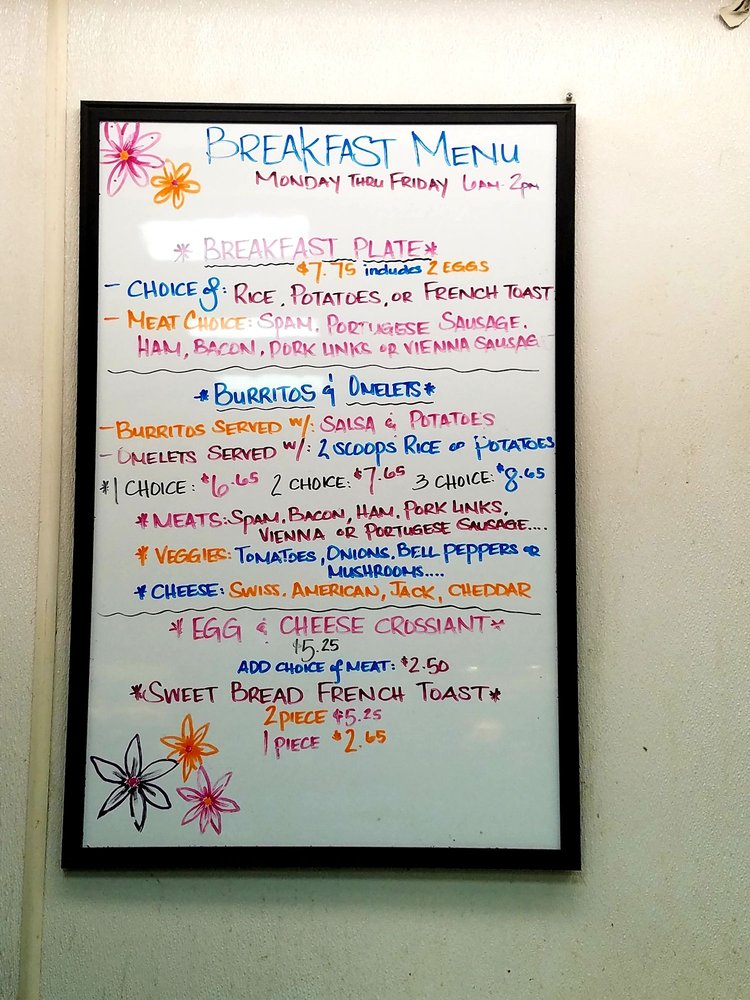 BREAKFAST MENU
MONDAY THRU FRIDAY 6AM-2PM
* BREAKFAST PLATE*
$7.75 includes 2 EGGS
- CHOICE of: RICE, POTATOES, OR FRENCH TOAST
- MEAT CHOICE: SPAM, PORTUGESE SAUSAGE,
HAM, BACON, PORK LINKS OR VIENNA SAUSAG
*BURRITOS & OMELETS*
- BURRITOS SERVED W/: SALSA & POTATOES
- OMELETS SERVED W/: 2 SCOOPS RICE or POTATOES
*1 CHOICE: $6.65 2 CHOICE: $7.65 3 CHOICE: $8.65
*MEATS: SPAM, BACON, HAM, PORK LINKS,
VIENNA OR PORTUGESE SAUSAGE....
*VEGGIES: TOMATOES, ONIONS, BELL PEPPERS OR
MUSHROOMS....
*CHEESE: SWISS, AMERICAN, JACK, CHEDDAR
*EGG & CHEESE CROSSIANT*
$5.25
ADD CHOICE of MEAT: $2.50
*SWEET BREAD FRENCH TOAST*
2 PIECE $5.25
1 PIECE $2.65